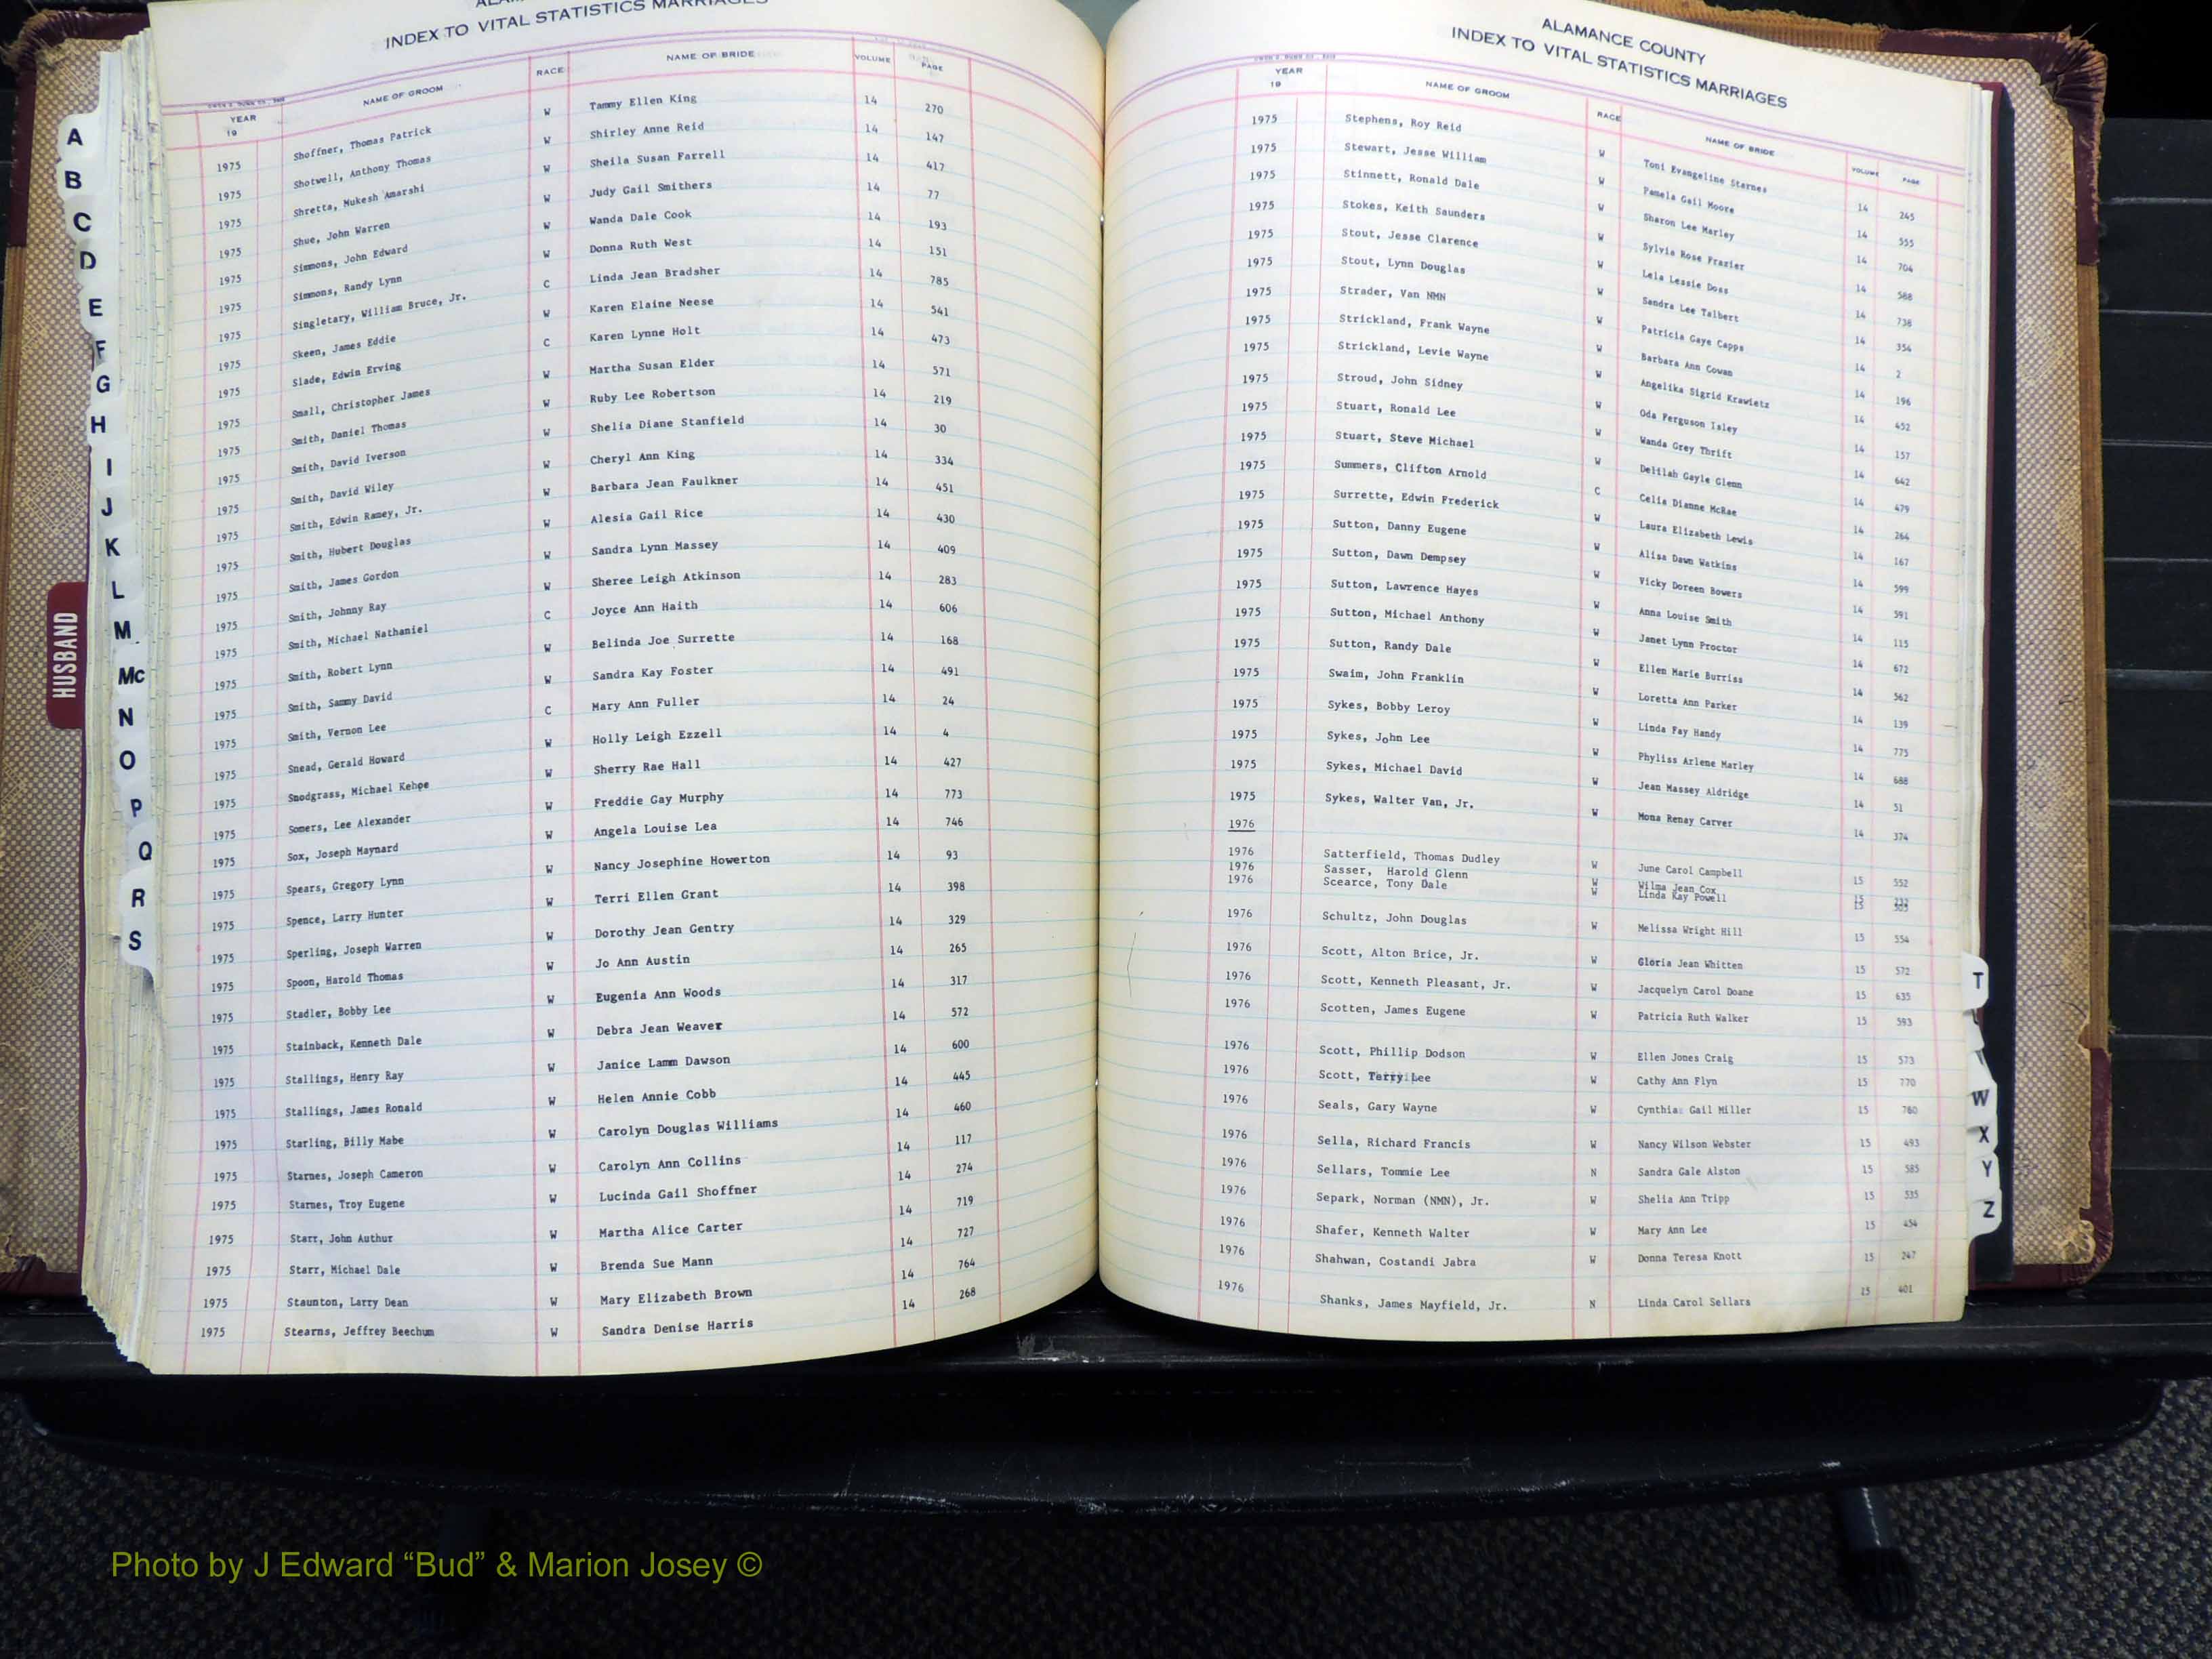 INDEX TO VITAL STATISTICS MARRIAGES
YEAR 19 NAME OF GROOM RACE NAME OF BRIDE VOLUME PAGE
1975 Shoffner, Thomas Patrick W Tammy Ellen King 14 270
1975 Shotwell, Anthony Thomas W Shirley Anne Reid 14 147
1975 Shretta, Mukesh Amarshi W Sheila Susan Farrell 14 417
1975 Shue, John Warren W Judy Gail Smithers 14 77
1975 Simmons, John Edward W Wanda Dale Cook 14 193
1975 Simmons, Randy Lynn W Donna Ruth West 14 151
1975 Singletary, William Bruce, Jr. C Linda Jean Bradsher 14 785
1975 Skeen, James Eddie W Karen Elaine Neese 14 541
1975 Slade, Edwin Erving C Karen Lynne Holt 14 473
1975 Small, Christopher James W Martha Susan Elder 14 571
1975 Smith, Daniel Thomas W Ruby Lee Robertson 14 219
1975 Smith, David Iverson W Shelia Diane Stanfield 14 30
1975 Smith, David Wiley W Cheryl Ann King 14 334
1975 Smith, Edwin Ramey, Jr. W Barbara Jean Faulkner 14 451
1975 Smith, Hubert Douglas W Alesia Gail Rice 14 430
1975 Smith, James Gordon W Sandra Lynn Massey 14 409
1975 Smith, Johnny Ray W Sheree Leigh Atkinson 14 283
1975 Smith, Michael Nathaniel C Joyce Ann Haith 14 606
1975 Smith, Robert Lynn W Belinda Joe Surrette 14 168
1975 Smith, Sammy David W Sandra Kay Foster 14 491
1975 Smith, Vernon Lee C Mary Ann Fuller 14 24
1975 Snead, Gerald Howard W Holly Leigh Ezzell 14 4
1975 Snodgrass, Michael Kehoe W Sherry Rae Hall 14 427
1975 Somers, Lee Alexander W Freddie Gay Murphy 14 773
1975 Sox, Joseph Maynard W Angela Louise Lea 14 746
1975 Spears, Gregory Lynn W Nancy Josephine Howerton 14 93
1975 Spence, Larry Hunter W Terri Ellen Grant 14 398
1975 Sperling, Joseph Warren W Dorothy Jean Gentry 14 329
1975 Spoon, Harold Thomas W Jo Ann Austin 14 265
1975 Stadler, Bobby Lee W Eugenia Ann Woods 14 317
1975 Stainback, Kenneth Dale W Debra Jean Weaver 14 572
1975 Stallings, Henry Ray W Janice Lamm Dawson 14 600
1975 Stallings, James Ronald W Helen Annie Cobb 14 445
1975 Starling, Billy Mabe W Carolyn Douglas Williams 14 460
1975 Starnes, Joseph Cameron W Carolyn Ann Collins 14 117
1975 Starnes, Troy Eugene W Lucinda Gail Shoffner 14 274
1975 Starr, John Authur W Martha Alice Carter 14 719
1975 Starr, Michael Dale W Brenda Sue Mann 14 727
1975 Staunton, Larry Dean W Mary Elizabeth Brown 14 764
1975 Stearns, Jeffrey Beechum W Sandra Denise Harris 14 268
ALAMANCE COUNTY
INDEX TO VITAL STATISTICS MARRIAGES
YEAR 19 NAME OF GROOM RACE NAME OF BRIDE VOLUME PAGE
1975 Stephens, Roy Reid W Toni Evangeline Starnes 14 245
1975 Stewart, Jesse William W Pamela Gail Moore 14 555
1975 Stinnett, Ronald Dale W Sharon Lee Marley 14 704
1975 Stokes, Keith Saunders W Sylvia Rose Frazier 14 588
1975 Stout, Jesse Clarence W Lela Lessie Doss 14 738
1975 Stout, Lynn Douglas W Sandra Lee Talbert 14 354
1975 Strader, Van NMN W Patricia Gaye Capps 14 2
1975 Strickland, Frank Wayne W Barbara Ann Cowan 14 196
1975 Strickland, Levie Wayne W Angelika Sigrid Krawietz 14 452
1975 Stroud, John Sidney W Oda Ferguson Isley 14 157
1975 Stuart, Ronald Lee W Wanda Grey Thrift 14 642
1975 Stuart, Steve Michael W Delilah Gayle Glenn 14 479
1975 Summers, Clifton Arnold C Celia Dianne McRae 14 264
1975 Surrette, Edwin Frederick W Laura Elizabeth Lewis 14 167
1975 Sutton, Danny Eugene W Alisa Dawn Watkins 14 599
1975 Sutton, Dawn Dempsey W Vicky Doreen Bowers 14 591
1975 Sutton, Lawrence Hayes W Anna Louise Smith 14 115
1975 Sutton, Michael Anthony W Janet Lynn Proctor 14 672
1975 Sutton, Randy Dale W Ellen Marie Burriss 14 562
1975 Swaim, John Franklin W Loretta Ann Parker 14 139
1975 Sykes, Bobby Leroy W Linda Fay Handy 14 775
1975 Sykes, John Lee W Phyliss Arlene Marley 14 688
1975 Sykes, Michael David W Jean Massey Aldridge 14 51
1975 Sykes, Walter Van, Jr. W Mona Renay Carver 14 374
1976
1976 Satterfield, Thomas Dudley W June Carol Campbell 15 552
1976 Sasser, Harold Glenn W Wilma Jean Cox 15
1976 Scearce, Tony Dale W Linda Kay Powell 15
1976 Schultz, John Douglas W Melissa Wright Hill 15 554
1976 Scott, Alton Brice, Jr. W Gloria Jean Whitten 15 572
1976 Scott, Kenneth Pleasant, Jr. W Jacquelyn Carol Doane 15 635
1976 Scotten, James Eugene W Patricia Ruth Walker 15 593
1976 Scott, Phillip Dodson W Ellen Jones Craig 15 573
1976 Scott, Terry Lee W Cathy Ann Flyn 15 770
1976 Seals, Gary Wayne W Cynthia Gail Miller 15 760
1976 Sella, Richard Francis W Nancy Wilson Webster 15 493
1976 Sellars, Tommie Lee N Sandra Gale Alston 15 585
1976 Separk, Norman (NMN), Jr. W Shelia Ann Tripp 15 535
1976 Shafer, Kenneth Walter W Mary Ann Lee 15 454
1976 Shahwan, Costandi Jabra W Donna Teresa Knott 15 247
1976 Shanks, James Mayfield, Jr. N Linda Carol Sellars 15 401
HUSBAND
A
B
C
D
E
F
G
H
I
J
K
L
M
Mc
N
O
P
Q
R
S
T
V
W
X
Y
Z
Photo by J Edward “Bud” & Marion Josey ©